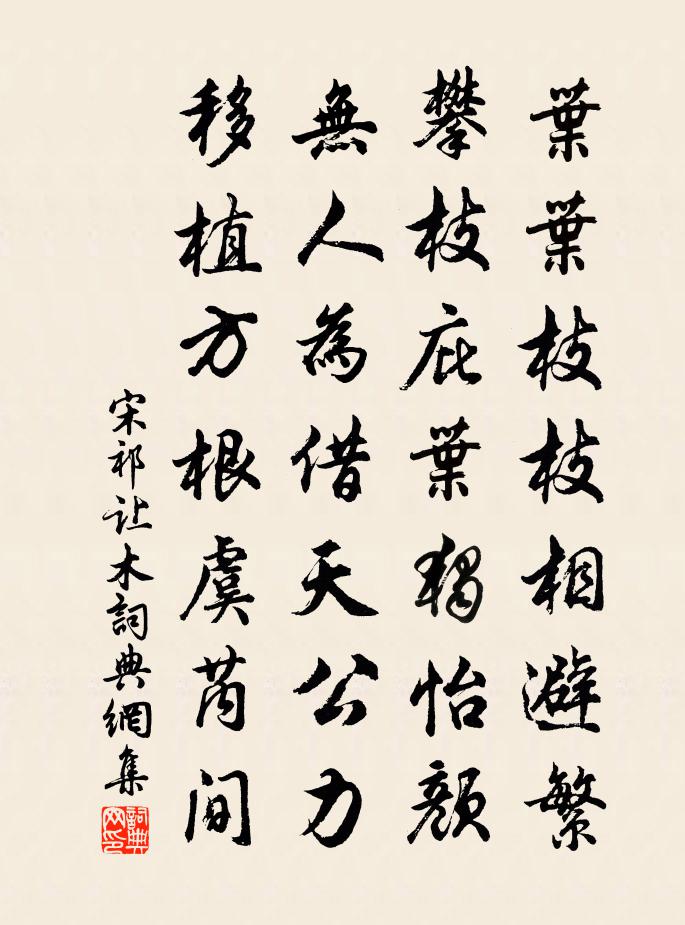 葉葉枝枝相避繁
攀枝庇葉獨怡顏
無人為借天公力
移植方根虞芮間
宋祁让木詞典網集
詞典网印